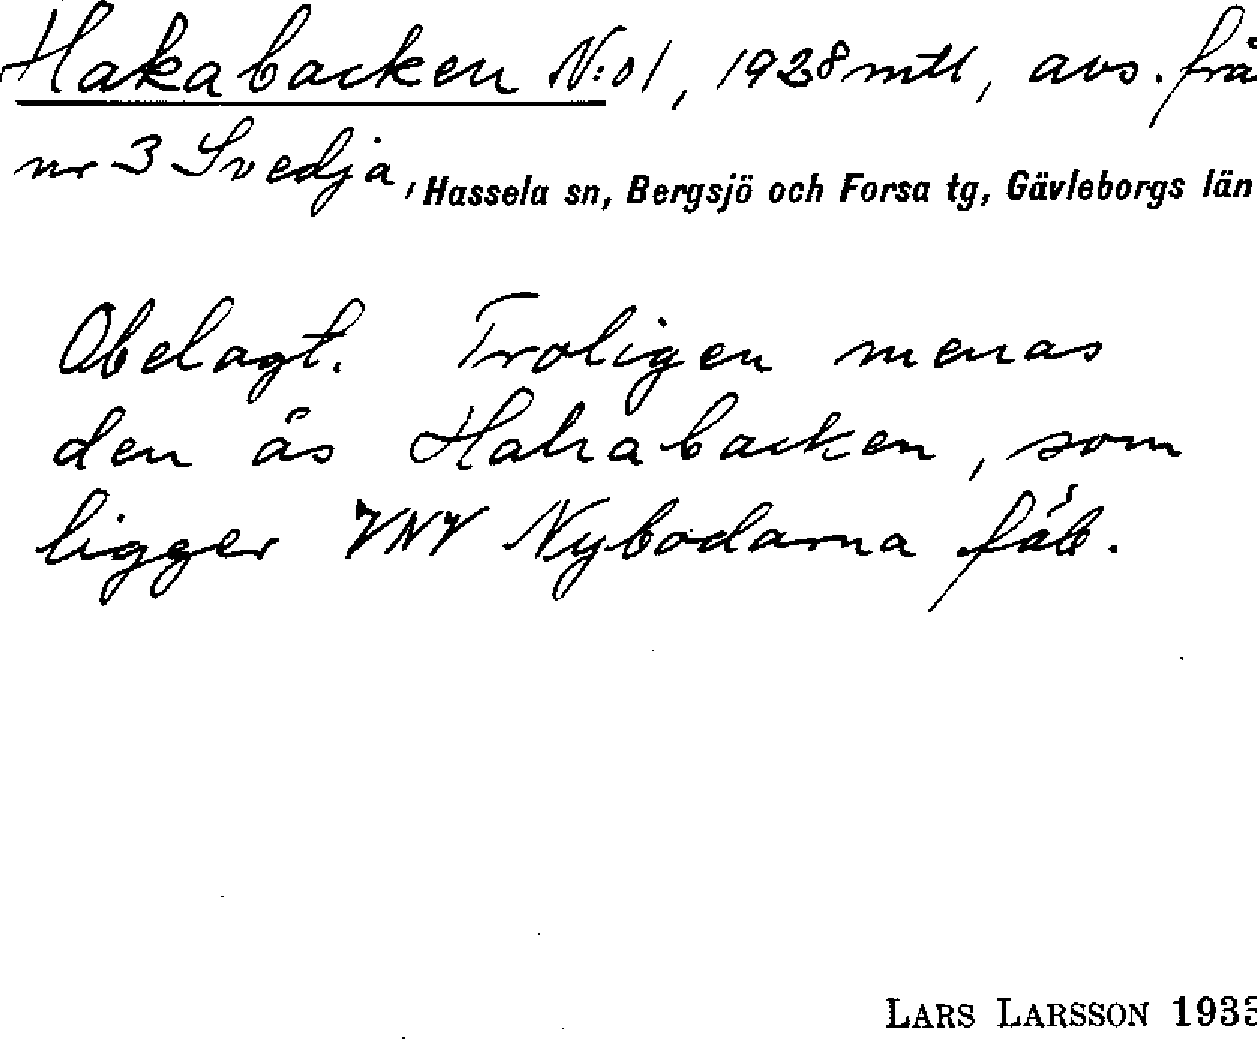 Hakabacken N:o 1, 1928 mtl, avs. frå
nr 3 Svedja, Hassela sn, Bergsjö och Forsa tg, Gävleborgs län
Obelagt. Troligen menas
den ås Hakabacken, som
ligger VNV Nybodarna fäb.
LARS LARSSON 1935